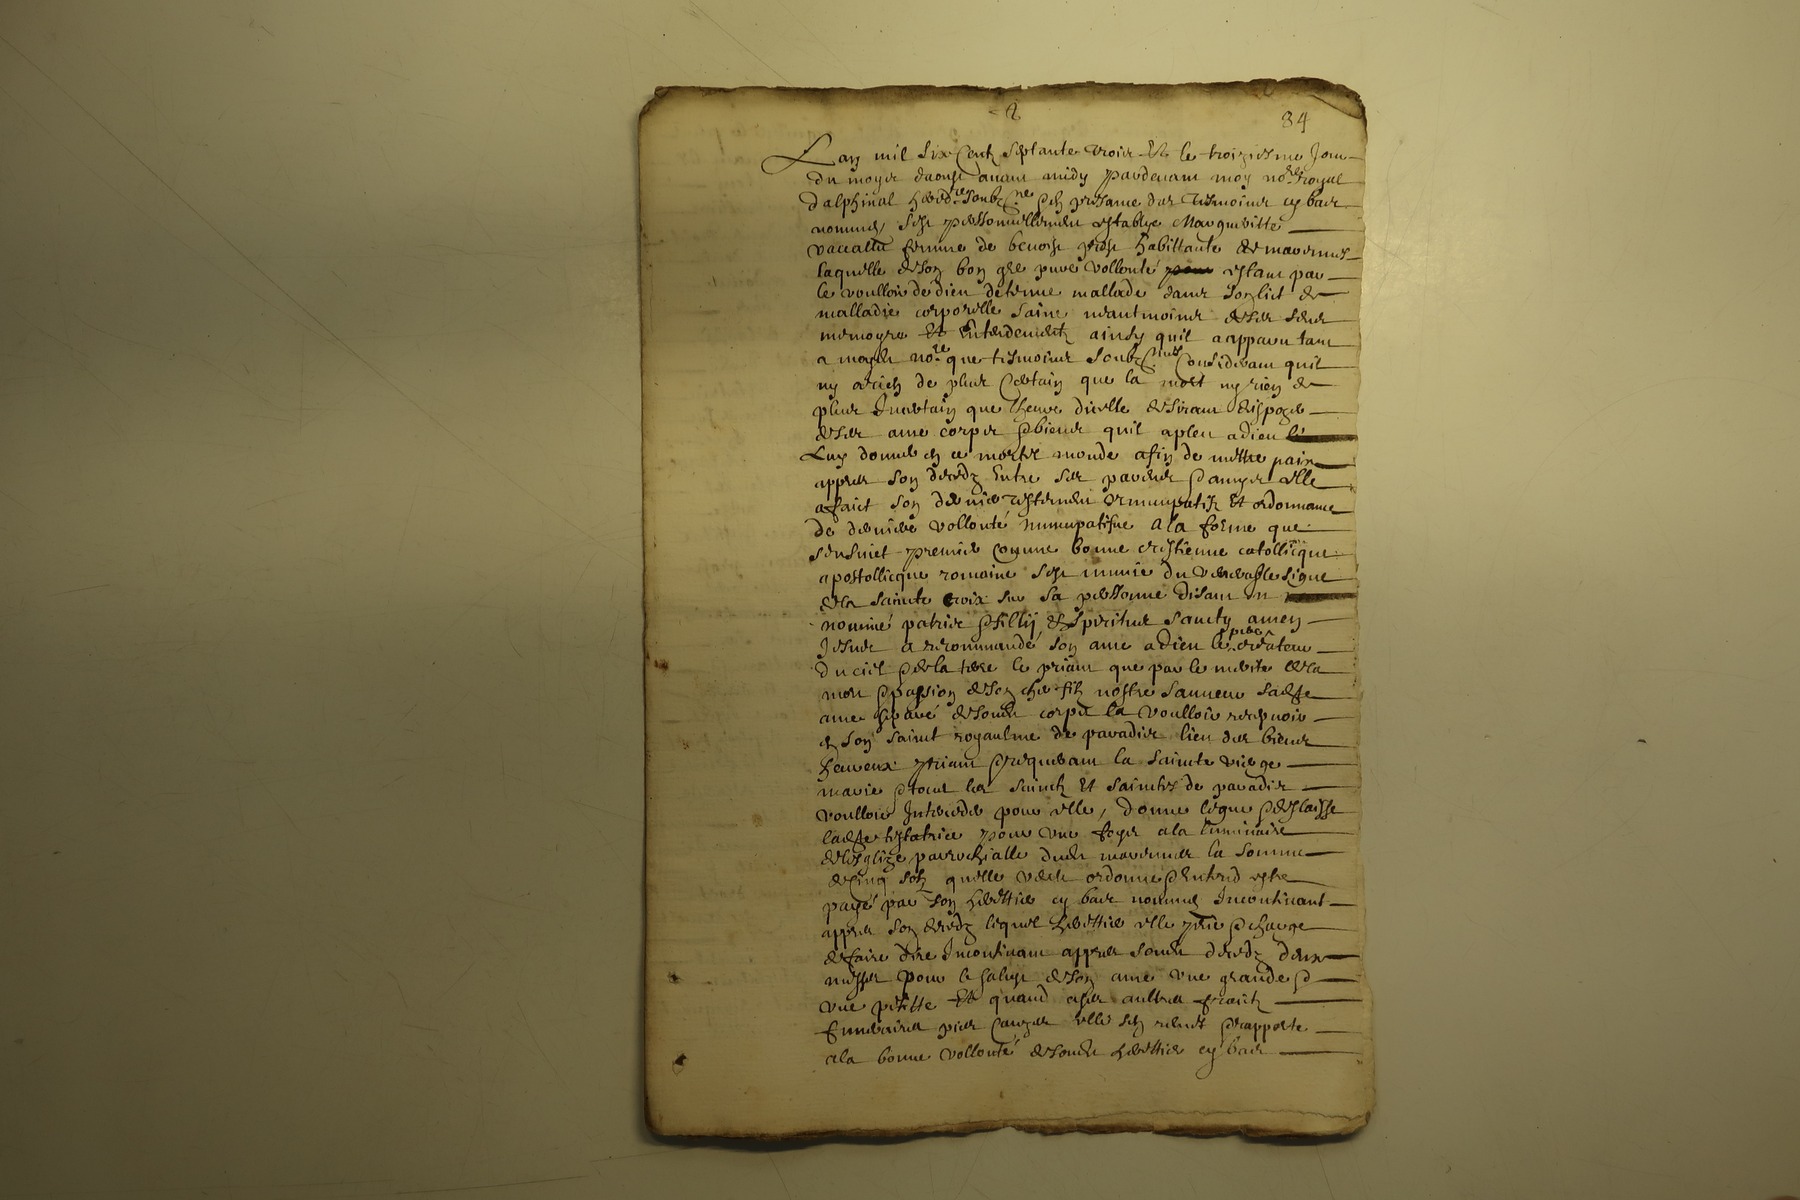 2
84
Lan mil six cent septante trois et le troiziesme jour
du moys daoust avant midy pardevant moy no.re royal
dalphinal hered.re soubz.ne et en presance des tesmoings cy bas
nommes sest personnellement establye Margueritte
femme de benoist habittante de
laquelle de son bon gre pure vollonté estant par
le voulloir de dieu detenue mallade dans son lict de
malladie corporelle saine neantmoings de ses sens
memoyre et entendement ainsy quil a apparu tant
a moydit no.re que tesmoings soubz.nes considerant quil
ny a rien de plus certain que la mort ny rien de
plus incertain que lheure dicelle desirant dispozer
de ses ame corps et biens quil a pleu a dieu
luy donner en ce mortel monde afin de mettre paix
appres son decedz entre ses parens et amys elle
a faict son dernier testement nuncupatif et ordonnance
de derniere vollonté nuncupatifve a la forme que
sensuict premier comme bonne crestienne catollicque
apostollicque romaine sest munie du venerable signe
de la saincte croix sur sa personne disant in
nominé patris et fillij et spiritus sancty amen
Jesus a recommandé son ame a dieu le pere createur
du ciel et de la terre le priant que par le merite de la
mort et passion de son cher filz nostre sauveur sadite
ame separé de sondit corps la voulloir recepvoir
en son sainct royaulme de paradis lieu des biens
heureux priant et requerant la saincte vierge
marie et tous les saincts et sainctes de paradis
voulloir interceder pour elle, donne legue et deslaisse
ladite testatrice pour une foys a la luminaire
de lesglize parrochialle dudit la somme
de cinq solz quelle veut ordonne et entend estre
payé par son herettier cy bas nommes incontinant
appres son decedz lequel herettier elle prie et charge
de faire dire incontinant appres sondit decedz deux
messes pour le salut de son ame une grande et
une petitte et quand a ses aultres fraictz
funeraires pies causes elle sen remet et rapporte
a la bonne vollonté de sondit herettier cy bas